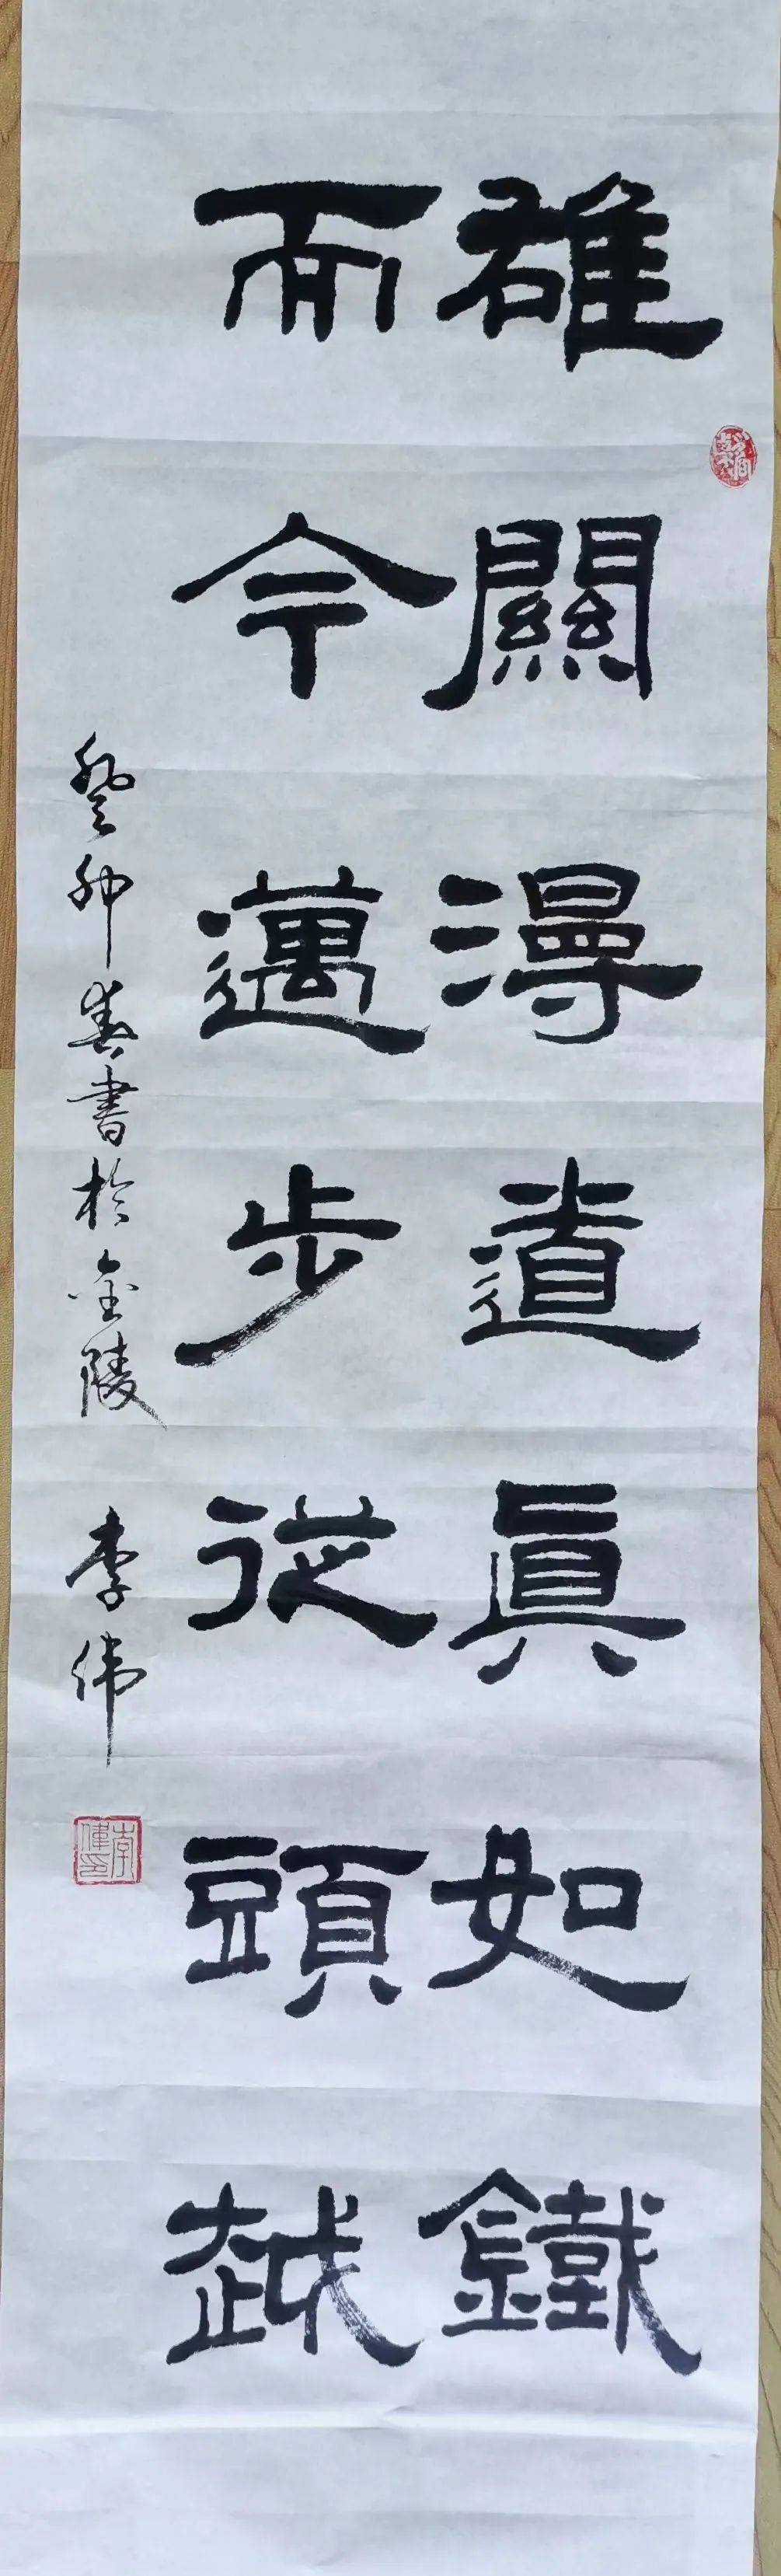 雄關漫道真如鐵
而今邁步從頭越
癸卯春書於金陵 李伟
李偉印